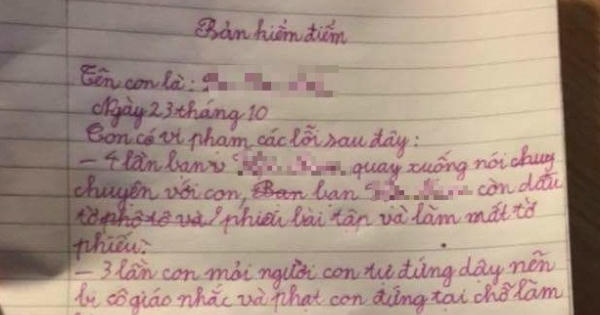 Bản kiểm điểm
Tên con là:
Ngày 23 tháng 10
Con có vi phạm các lỗi sau đây:
- 4 lần bạn quay xuống nói chuy
chuyện với con, Ban bạn còn dấu
tờ phô tô và phiếu bài tập và làm mất tờ
phiếu.
- 3 lần con mỏi người con tự đứng dậy nên
bị cô giáo nhắc và phạt con đứng tại chỗ làm